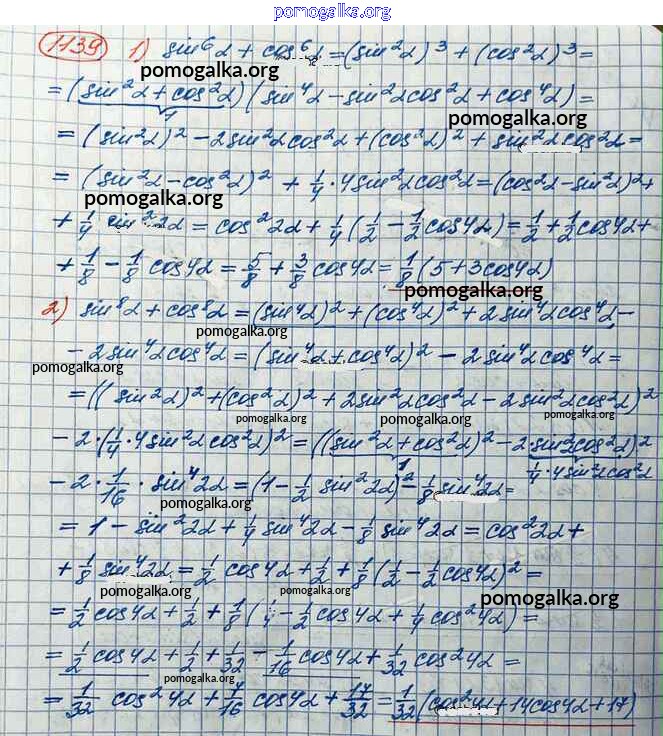 pomogalka.org
1139 1) sin⁶α + cos⁶α = (sin²α)³ + (cos²α)³ =
pomogalka.org
= (sin²α + cos²α)(sin⁴α - sin²αcos²α + cos⁴α) =
1 pomogalka.org
= (sin²α)² - 2sin²αcos²α + (cos²α)² + sin²αcos²α =
= (sin²α - cos²α)² + 1/4 · 4sin²αcos²α = (cos²α - sin²α)² +
pomogalka.org
+ 1/4 sin²2α = cos²2α + 1/4 (1/2 - 1/2 cos4α) = 1/2 + 1/2 cos4α +
pomogalka.org
+ 1/8 - 1/8 cos4α = 5/8 + 3/8 cos4α = 1/8 (5 + 3cos4α)
pomogalka.org
2) sin⁸α + cos⁸α = (sin⁴α)² + (cos⁴α)² + 2sin⁴αcos⁴α -
pomogalka.org pomogalka.org
- 2sin⁴αcos⁴α = (sin⁴α + cos⁴α)² - 2sin⁴αcos⁴α =
pomogalka.org pomogalka.org
= ((sin²α)² + (cos²α)² + 2sin²αcos²α - 2sin²αcos²α)²
pomogalka.org pomogalka.org pomogalka.org
- 2 · (1/4 · 4sin²αcos²α)² = ((sin²α + cos²α)² - 2sin²αcos²α)²
pomogalka.org 1 1/4 · 4sin²αcos²α
- 2 · 1/16 · sin⁴2α = (1 - 1/2 sin²2α)² - 1/8 sin⁴2α =
pomogalka.org
= 1 - sin²2α + 1/4 sin⁴2α - 1/8 sin⁴2α = cos²2α +
+ 1/8 sin⁴2α = 1/2 cos4α + 1/2 + 1/8 (1/2 - 1/2 cos4α)² =
pomogalka.org pomogalka.org
= 1/2 cos4α + 1/2 + 1/8 (1/4 - 1/2 cos4α + 1/4 cos²4α) =
= 1/2 cos4α + 1/2 + 1/32 - 1/16 cos4α + 1/32 cos²4α =
pomogalka.org pomogalka.org
= 1/32 cos²4α + 7/16 cos4α + 17/32 = 1/32 (cos²4α + 14cos4α + 17)